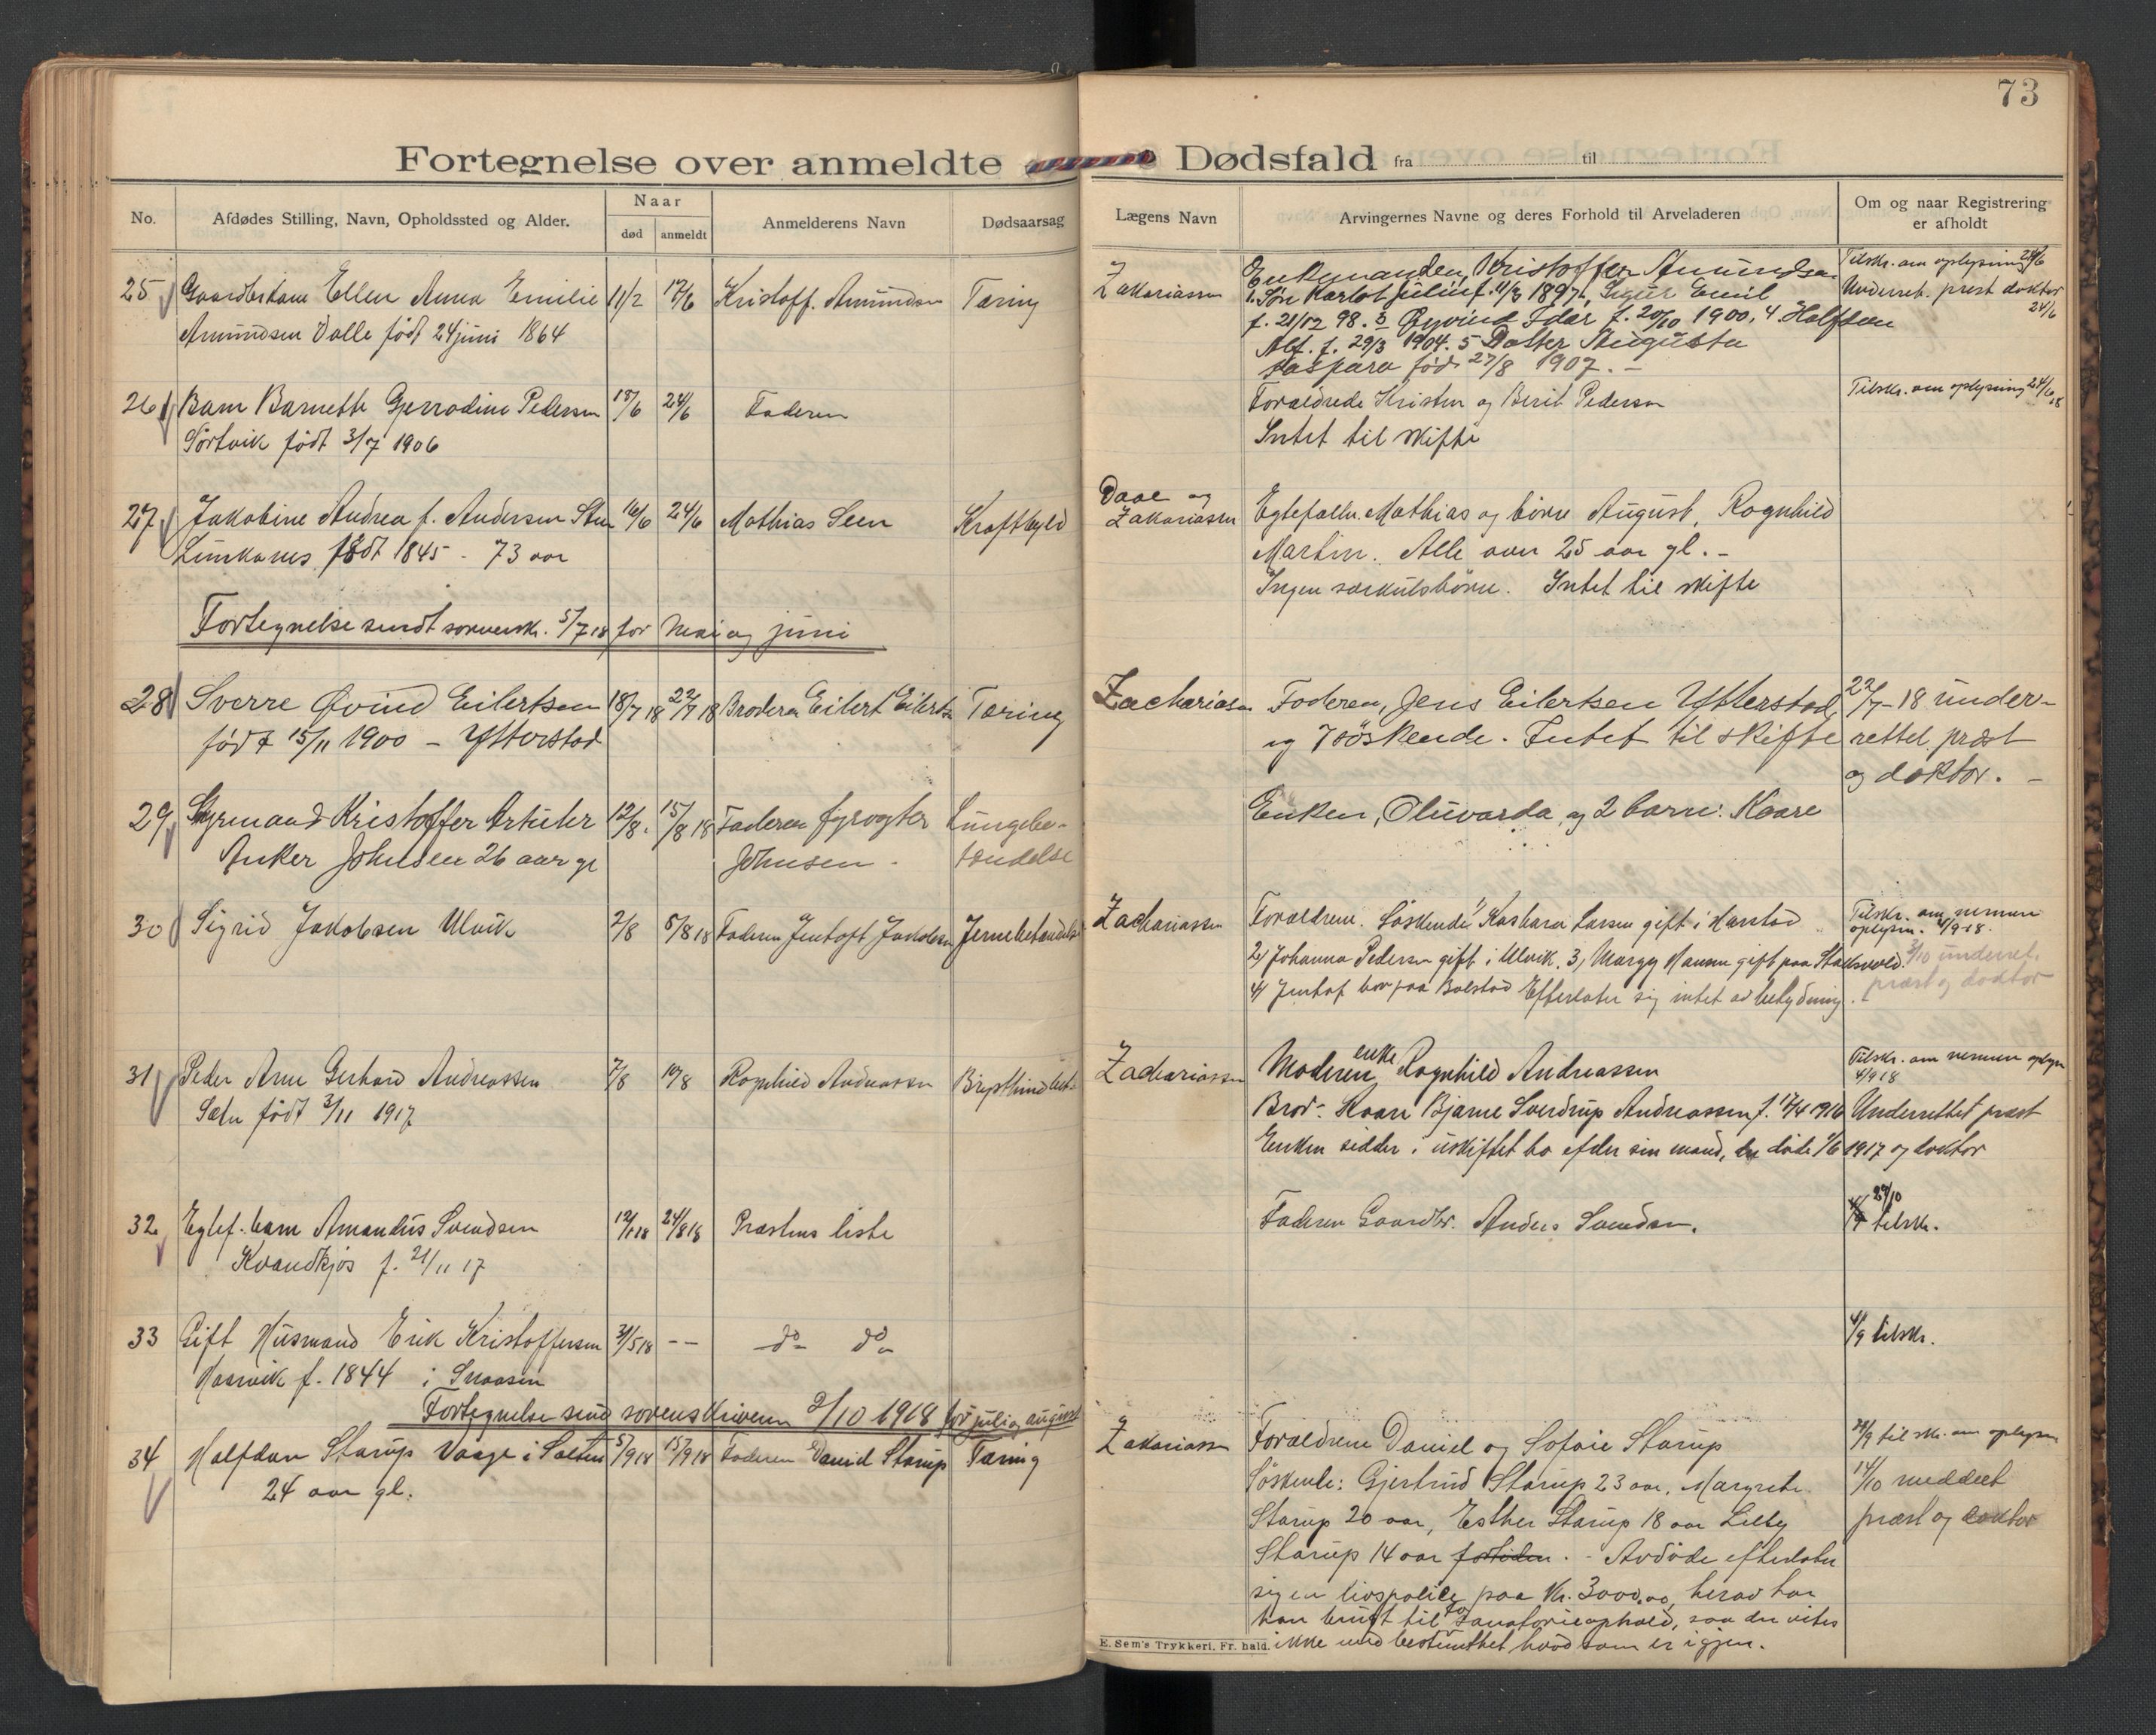 73
Fortegnelse over anmeldte Dødsfald fra til
No. Afdødes Stilling, Navn, Opholdssted og Alder. Naar død anmeldt Anmelderens Navn Dødsaarsag Lægens Navn Arvingernes Navne og deres Forhold til Arveladeren Om og naar Registrering er afholdt
25 Gaardbrkone Ellen Anna Emilie 11/2 17/6 Kristoff. Amundsen Tæring
Amundsen Valle født 24 juni 1864
Zakariassen Enkemanden, Kristoffer Amundsen Tilskr. om oplysning 24/6
1. Søn Karlot Julius f. 11/3 1897, Sigur Emil Underret. prest doktor
f. 21/12 98. 3 Øyvind Idar f. 20/10 1900, 4 Halfdan 24/6
Alf. f. 29/3 1904. 5 Datter Augusta
Kaspara født 27/8 1907. -
26 Barn Barnette Gjerradine Pedersen 18/6 24/6 Faderen
Sørtvik født 3/7 1906
Forældrede Kristen og Berit Pedersen Tilskr. om oplysning 24/6 18
Intet til skifte
27 Jakobine Andrea f. Andersen 16/6 24/6 Mathias Seen
født 1845 - 73 aar
Daae og
Zakariassen Egtefælle. Mathias og børn August, Ragnhild
Martin. Alle over 25 aar gl. -
Ingen særkulsbørn. Intet til skifte
Fortegnelse sendt sorensk. 5/7 18 for mai og juni
28 Sverre Øvind Eilertsen 18/7 18 22/7 18 Broderen Eilert Eilertsen Tæring
født 15/11 1900 - Ytterstad
Zachariasen Faderen, Jens Eilertsen Ytterstad, 22/7-18 under-
og 7 søskende. Intet til skifte rettet præst
og doktor. -
29 Styrmand Kristoffer Artur 12/8. 15/8 18 Faderen fyrvogter Lungebe-
Anker Johnsen 26 aar gl Johnsen - tændelse
Enken, Oluvarda, og 2 barn: Kaare
30 Sigrid Jakobsen Ulvik 2/8 5/8 18 Faderen Jentoft Jakobsen
Zachariassen Forældrene. Søskende 1) Kasbara Larsen gift i Harstad Tilskr. om nærmere
oplysn. 4/9 18.
2) Johanna Pedersen gift i Ulvik, 3, Margy Hansen gift paa 3/10 underret.
4) Jentof bor paa Bolstad Efterlater sig intet av betydning. præst og doktor
31 Peder Arne Gerhard Andreassen 7/8 10/8 Ragnhild Andreassen
Sætn født 3/11 1917
Zachariassen Moderen enke Ragnhild Andreassen Tilskr. om nærmere oplysn
4/9 18
Bror- Kaare Bjarne Sverdrup Andreassen f. 17/4 1916 Underrettet præst
Enken sidder i uskiftet bo efder sin mand, døde 1/6 1917 og doktor
32 Egtef. barn Amandus Svendsen 12/1 18 24/8 18 Præstens liste
Kvandkjøs f. 21/11 17
Faderen Gaardbr. Anders Svendsen. 29/10
tilskr.
33 Gift Husmand Erik Kristoffersen 31/5 18 -- do do
f. 1844 i Snaasen
4/9 tilskr.
Fortegnelse send sorenskriveren 2/10 1918 for juli og august
34 Halfdan Starup Vaage i Salten 5/9 18 15/9 18 Faderen Daniel Starup Tæring
24 aar gl.
Zakariassen Forældrene Daniel og Sofaie Starup tilskr. om oplysn
Søskende: Gjertrud Starup 23 aar, Margrete 14/10 meddelt
Starup 20 aar, Esther Starup 18 aar Lilly præst og doktor
Starup 14 aar. - Avdøde efterlater
sig en livspolice paa Kr. 3000.00, herav har
han brugt til sanatorieophold, saa der vites
ikke med bestemthet hvad som er igjen.
E. Sem's Trykkeri, Fr. hald.